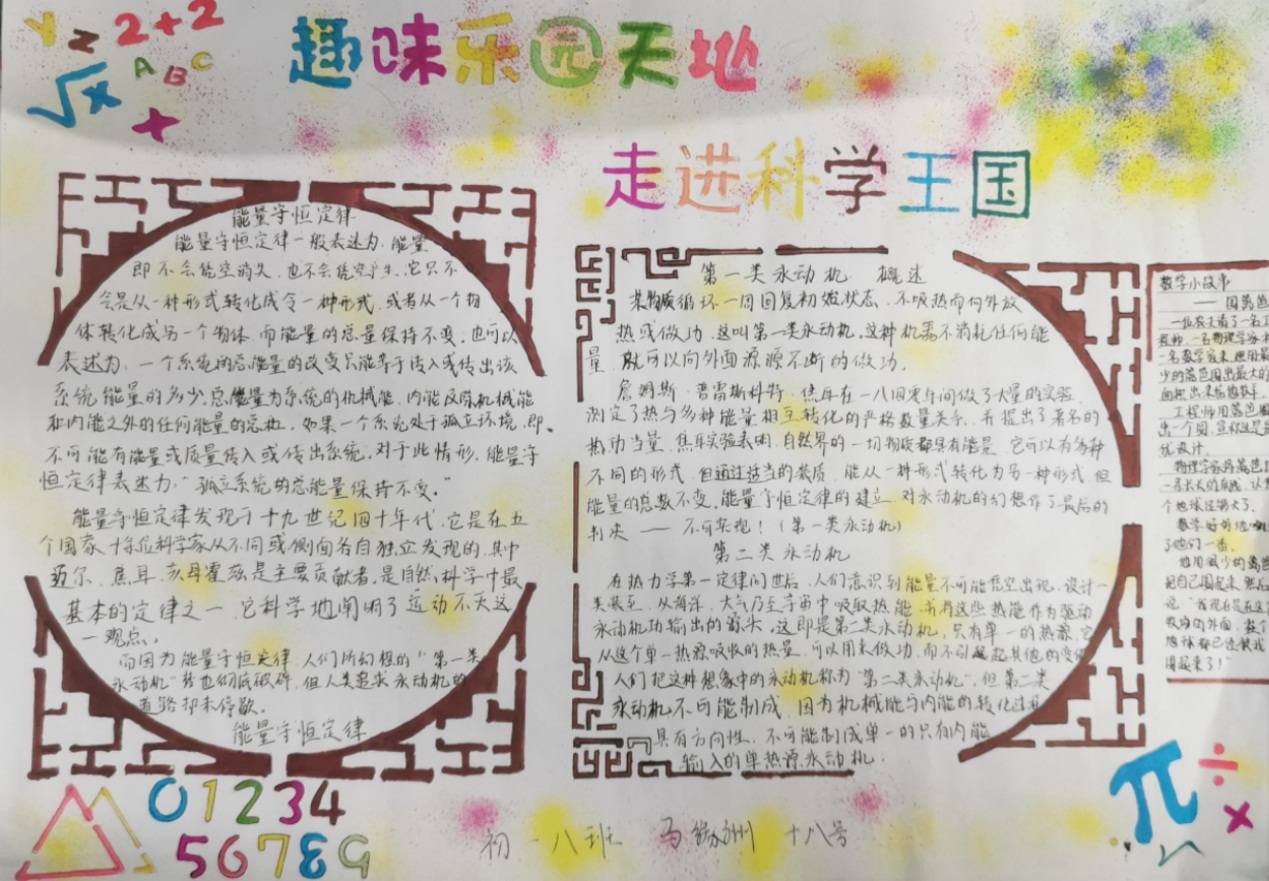 趣味乐园天地
y z 2+2
A B C
√x
+
走进科学王国
能量守恒定律
能量守恒定律一般表述为,能量
即不会凭空消失,也不会凭空产生,它只
会是从一种形式转化成另一种形式,或者从一个物
体转化成另一个物体,而能量的总量保持不变。也可以
表述为:一个系统的总能量的改变只能等于传入或传出该
系统能量的多少。总能量为系统的机械能、内能及除机械能
和内能之外的任何能量的总和。如果一个系统处于孤立环境,即
不可能有能量或质量传入或传出系统。对于此情形,能量守
恒定律表述为:“孤立系统的总能量保持不变。”
能量守恒定律发现于十九世纪四十年代,它是在五
个国家、十余位科学家从不同或侧面各自独立发现的,其中
迈尔、焦耳、亥姆霍兹是主要贡献者。是自然科学中最
基本的定律之一,它科学地阐明了运动不灭这
一观点。
而因为能量守恒定律,人们所幻想的“第一类
永动机”彻底破碎,但人类追求永动机的
道路却未停歇。
能量守恒定律
第一类永动机 概述
某物质循环一周回复初始状态,不吸热而向外放
热或做功,这叫第一类永动机。这种机器不消耗任何能
量,就可以向外面源源不断的做功。
詹姆斯·普雷斯科特·焦耳在一八四零年间做了大量的实验
测定了热与多种能量相互转化的严格数量关系,并提出了著名的
热功当量,焦耳实验表明,自然界的一切物质都具有能量,它可以有多种
不同的形式,但通过适当的装质,能从一种形式转化为另一种形式,但
能量的总数不变。能量守恒定律的建立,对永动机的幻想作了最后的
判决——不可实现!(第一类永动机)
第二类永动机
在热力学第一定律问世后,人们意识到能量不可能凭空出现,设计一
类装置,从海洋、大气乃至宇宙中吸取热能,并将这些热能作为驱动
永动机功输出的源头。这即是第二类永动机,只有单一的热源,它
从这个单一热源吸收的热量,可以用来做功,而不引起其他的变化
人们把这种想象中的永动机称为“第二类永动机”。但第二类
永动机不可能制成,因为机械能与内能的转化过程
具有方向性,不可能制成单一的只有内能
输入的单热源永动机。
数学小故事
——围篱笆
一位农夫请了一名工
程师、一名物理学家和
一名数学家来,想用最
少的篱笆围出最大的
面积
工程师用篱笆围
出一个圆,宣称这是最
优设计。
物理学家将篱笆拉
一条长长的直线,认为
个地球足够大了。
数学好好地嘲
了他们一番。
他用很少的篱笆
把自己围起来,然后
说:“我现在是在这
π ÷ ×
0 1 2 3 4
5 6 7 8 9
初一八班 马缘洲 十八号